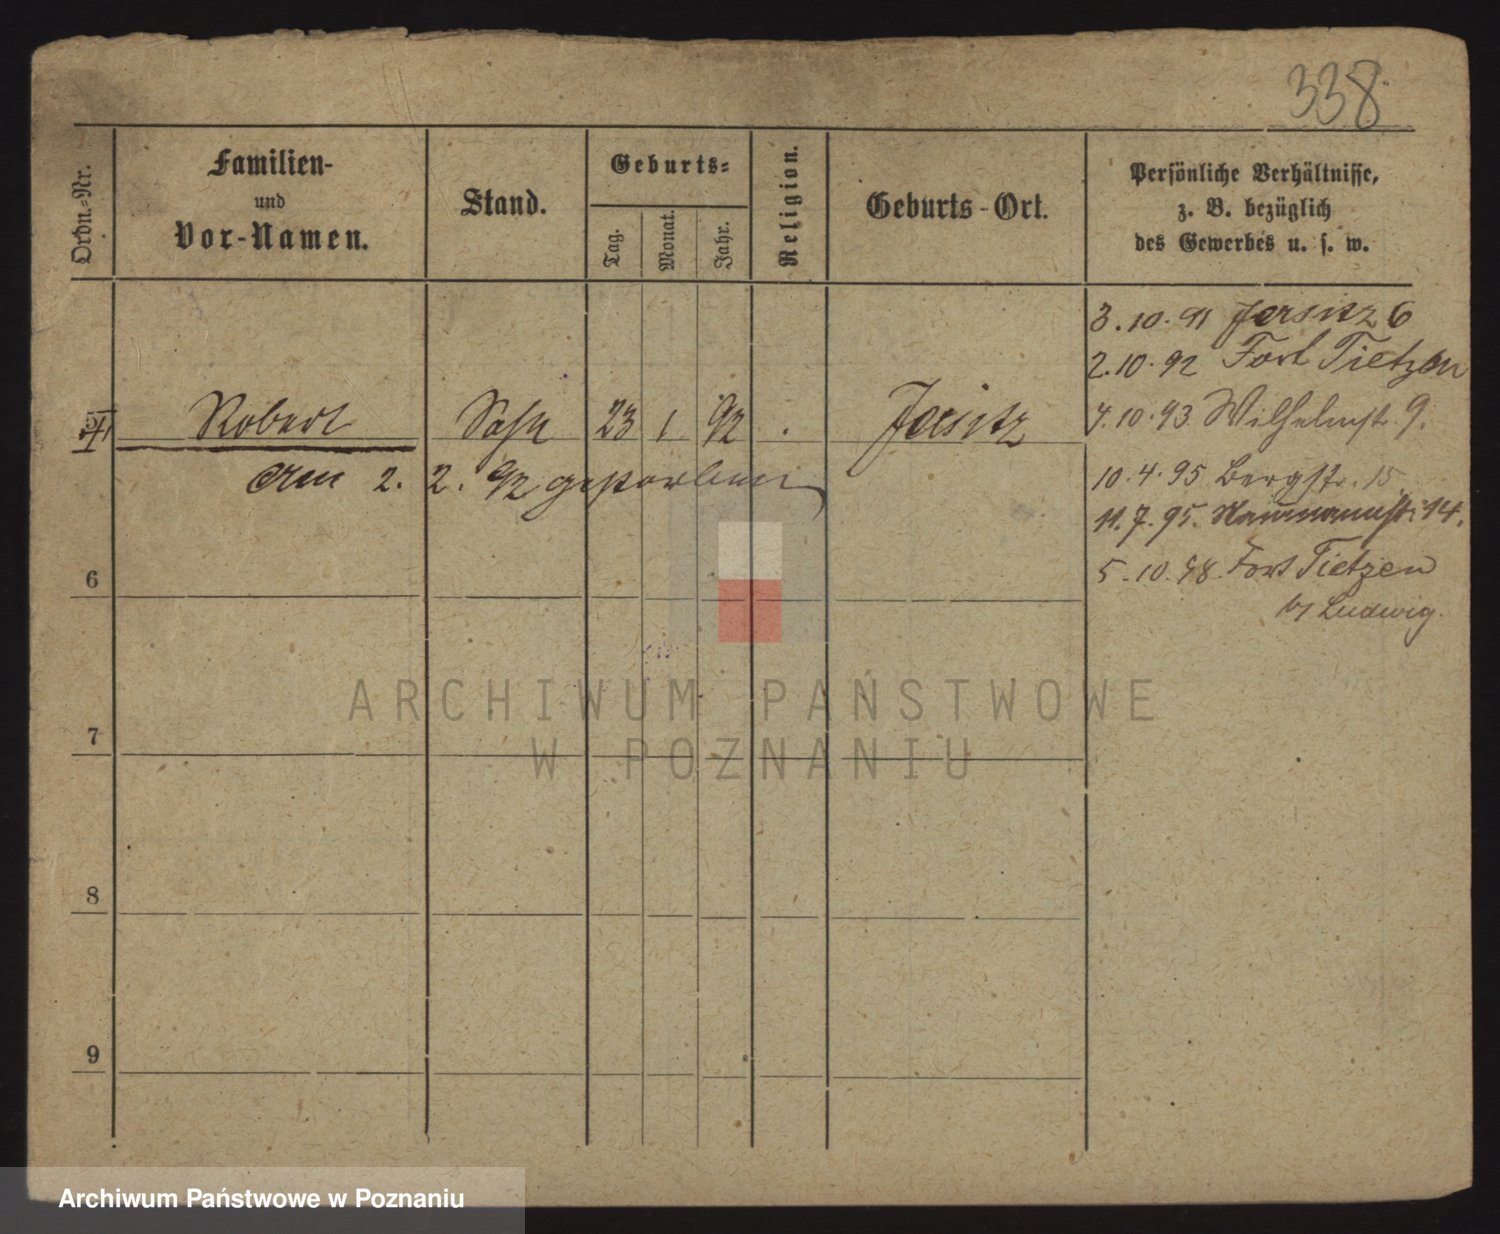 338
Ordn.-Nr.
Familien-
und
Vor-Namen.
Stand.
Geburts-
Tag.
Monat.
Jahr.
Religion.
Geburts-Ort.
Persönliche Verhältnisse,
z. B. bezüglich
des Gewerbes u. s. w.
3.10.91 Jersitz 6
2.10.92 Fort Tietzen
Robert Sohn 23 1 92 . Jersitz
4.10.93 Wilhelmst. 9.
am 2. 2. 92 gestorben
10.4.95 Bergstr. 15
11.7.95. 14.
5.10.98 Fort Tietzen
by Ludwig.
6
7
8
9
ARCHIWUM PAŃSTWOWE
W POZNANIU
Archiwum Państwowe w Poznaniu